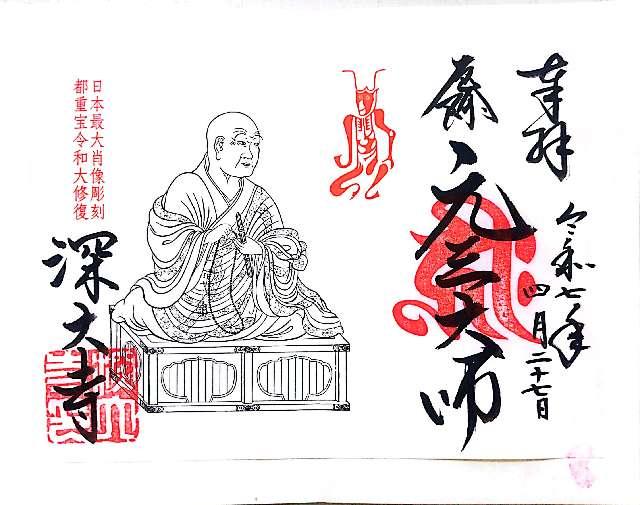 奉拝
令和七年
四月二十七日
元三大師
日本最大肖像彫刻
都重宝令和大修復
深大寺